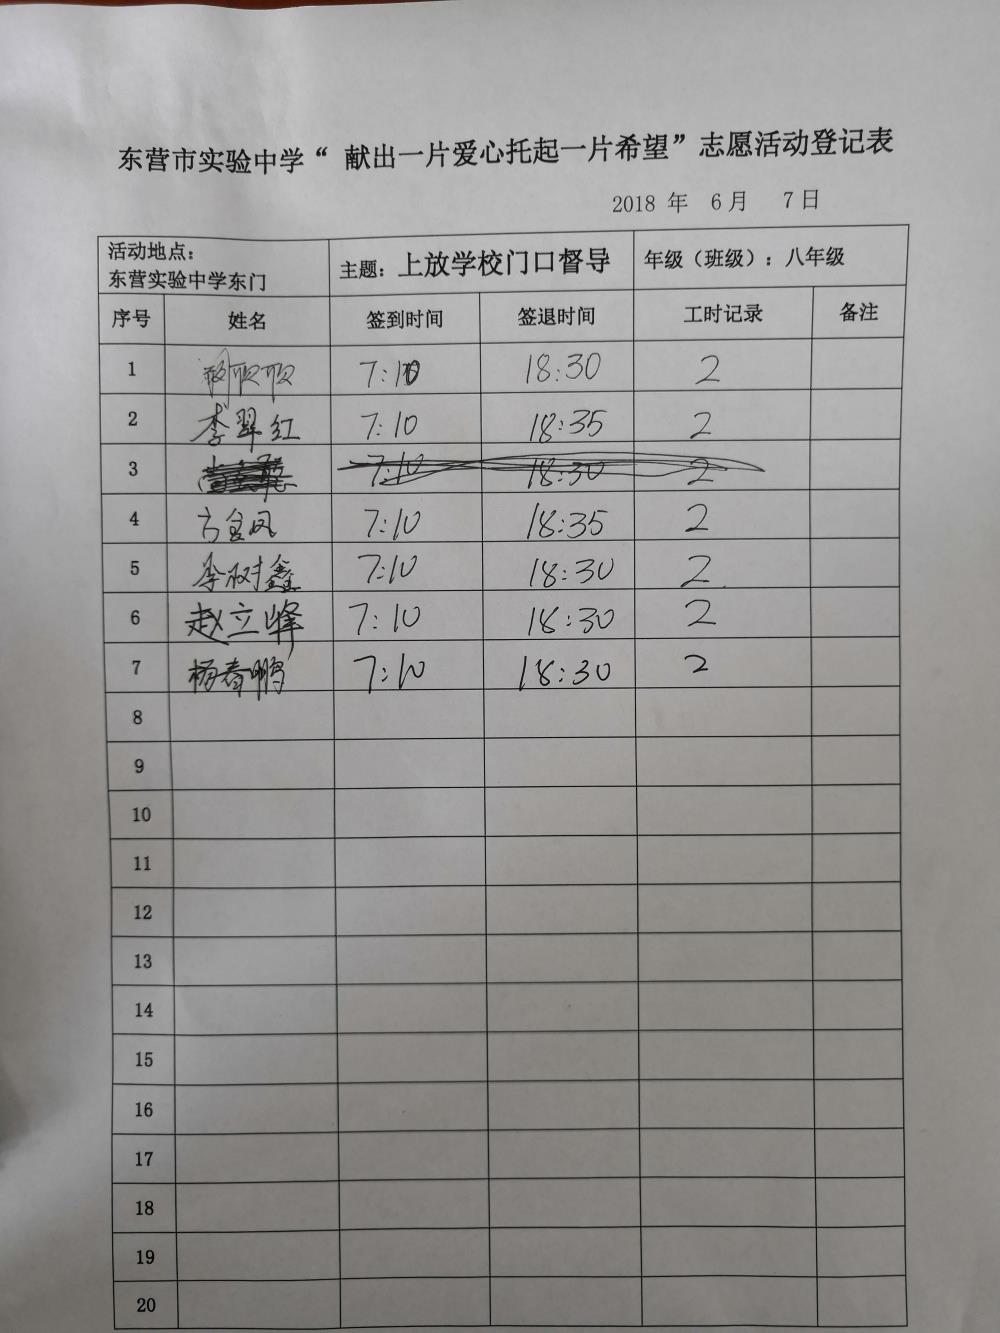 东营市实验中学“ 献出一片爱心托起一片希望”志愿活动登记表
2018 年 6月 7日
活动地点：
东营实验中学东门
主题：上放学校门口督导
年级（班级）：八年级
序号 姓名 签到时间 签退时间 工时记录 备注
1 7:10 18:30 2
2 李翠红 7:10 18:35 2
3 7:10 18:30 2
4 方金凤 7:10 18:35 2
5 李树鑫 7:10 18:30 2
6 赵立峰 7:10 18:30 2
7 杨春鹏 7:10 18:30 2
8
9
10
11
12
13
14
15
16
17
18
19
20